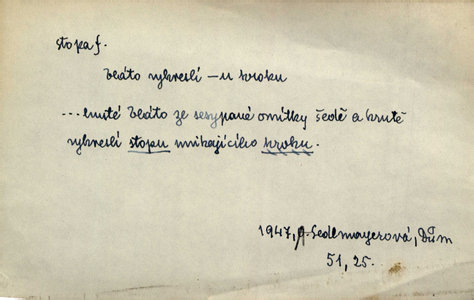 stopa f.
bláto vykreslí – u kroku
... kluté bláto ze sesypané omítky šedě a krutě
vykreslí stopu unikajícího kroku.
1947, A. Sedlmayerová, Dům
51, 25.